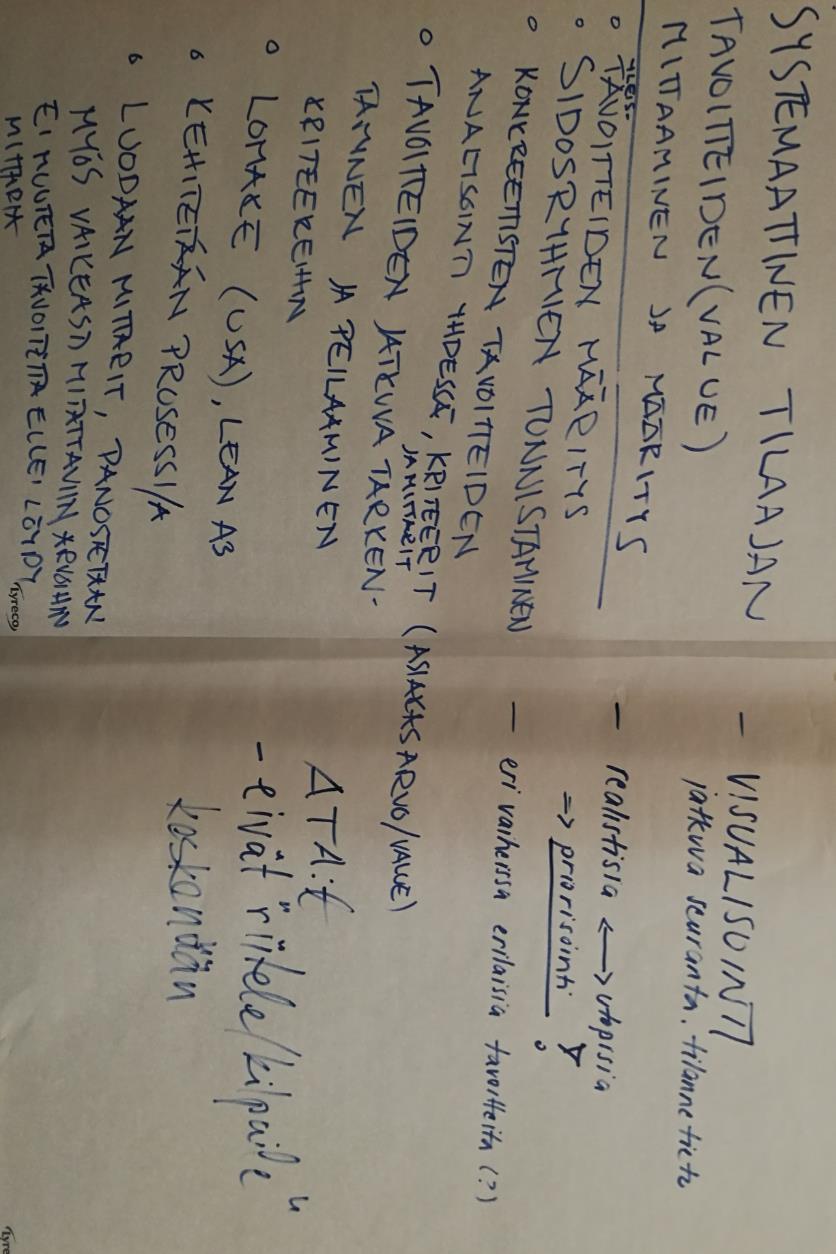 SYSTEMAATTINEN TILAAJAN
TAVOITTEIDEN (VALUE)
MITTAAMINEN JA MÄÄRITYS
YLEIS-
° TAVOITTEIDEN MÄÄRITYS
° SIDOSRYHMIEN TUNNISTAMINEN
° KONKREETTISTEN TAVOITTEIDEN
ANALYSOINTI YHDESSÄ, KRITEERIT
JA MITTARIT
(ASIAKASARVO/VALUE)
° TAVOITTEIDEN JATKUVA TARKEN-
TAMINEN JA PEILAAMINEN
KRITEEREIHIN
° LOMAKE (USA), LEAN A3
° KEHITETÄÄN PROSESSI/A
° LUODAAN MITTARIT, PANOSTETAAN
MYÖS VAIKEASTI MITATTAVIIN ARVOIHIN
EI MUUTETA TAVOITETTA ELLEI LÖYDY
MITTARIA
Lyreco
- VISUALISOINTI
jatkuva seuranta, tilannetieto
- realistisia <-> utopisia
=> priorisointi
- eri vaiheissa erilaisia tavoitteita (?)
ATA:t
- eivät "riitele/kilpaile"
keskenään
Lyre